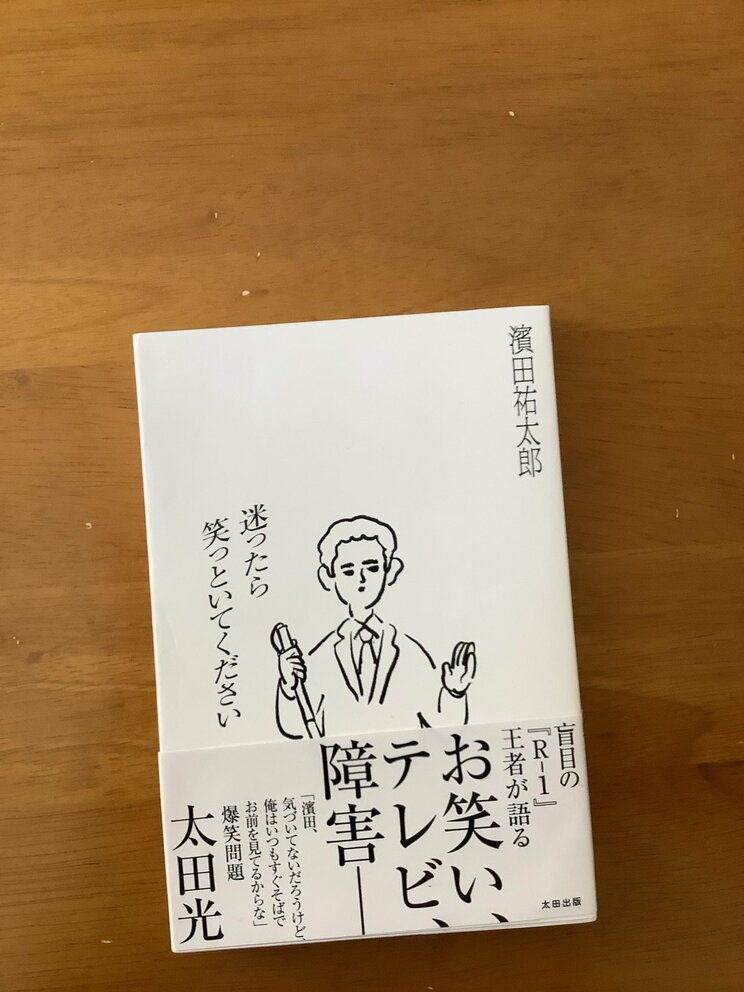 濱田祐太郎
迷ったら
笑っといてください
盲目の
『R-1』
王者が語る
お笑い、
テレビ、
障害―
「濱田、
気づいてないだろうけど、
俺はいつもすぐそばで
お前を見てるからな」
爆笑問題
太田光
太田出版